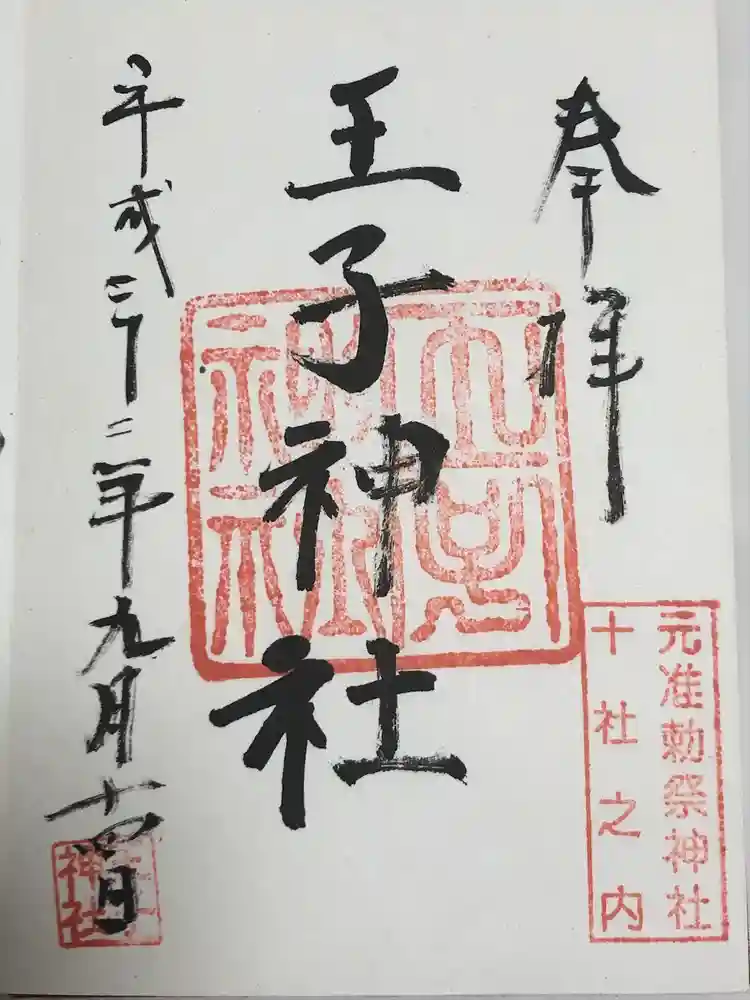 奉拝
元准勅祭神社
十社之内
王子神社
平成三十二年九月十四日